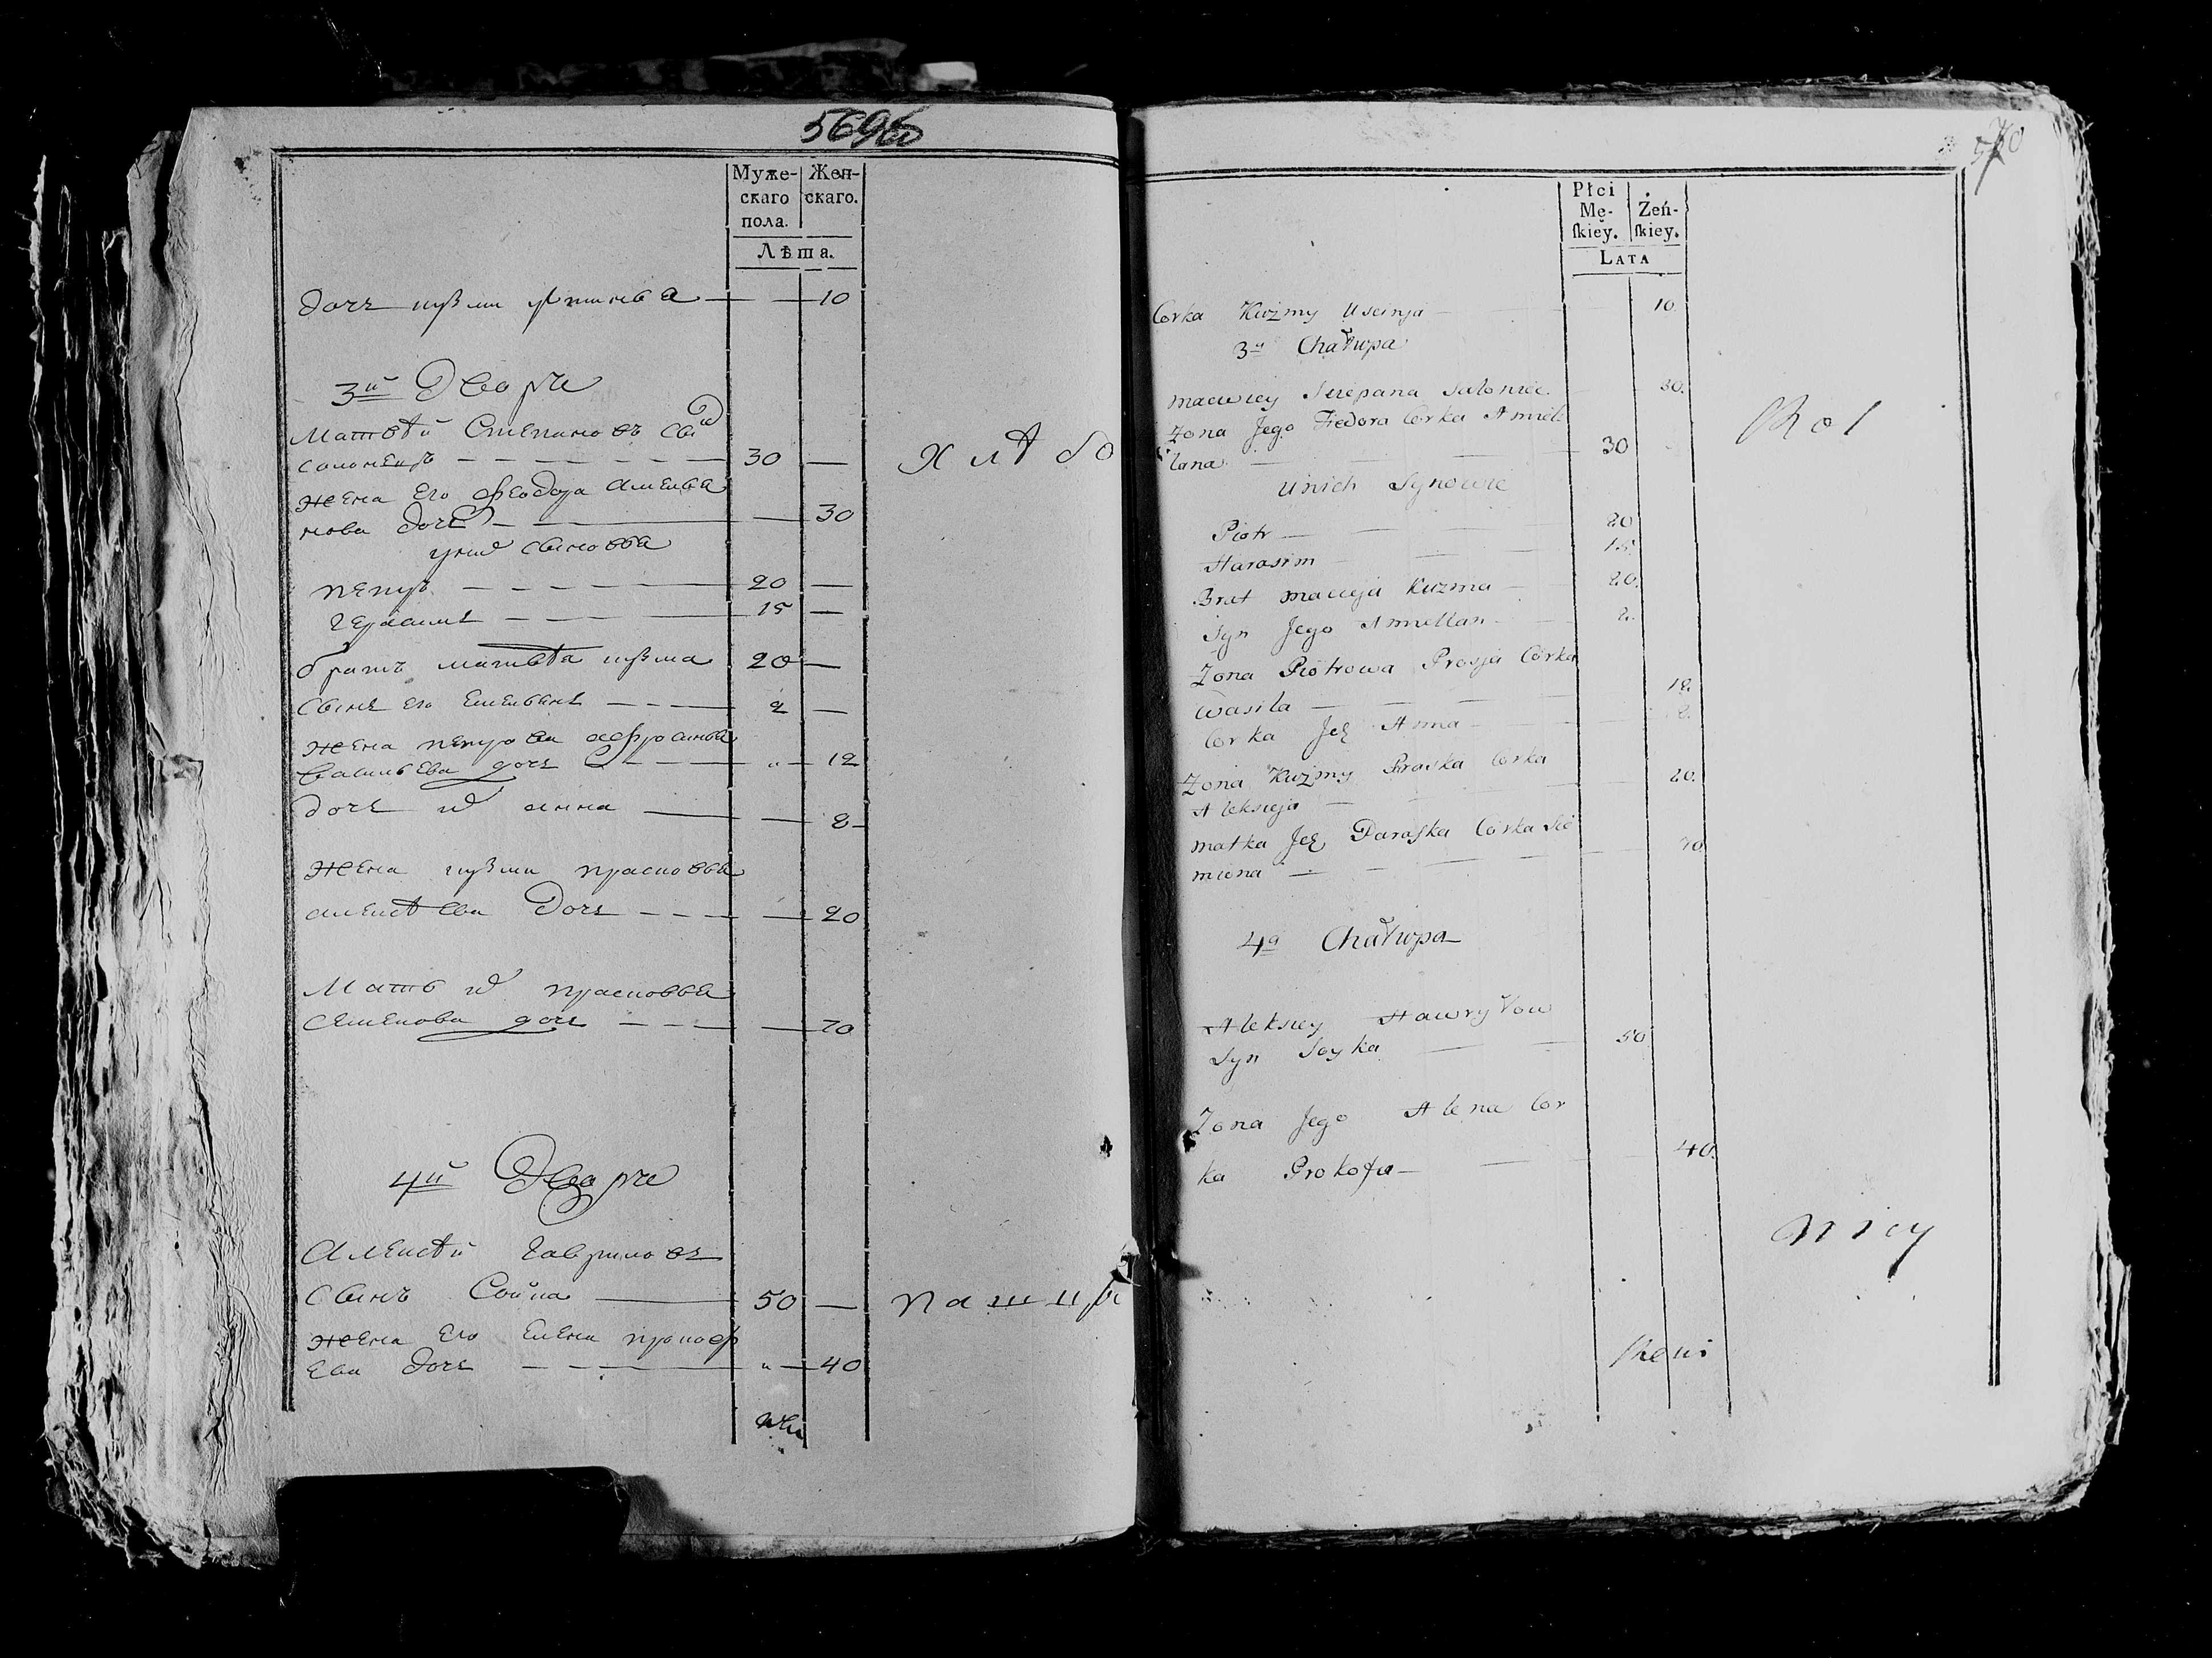 569об
Муже-
скаго
пола.
Жен-
скаго.
Лѣта.
дочь кузми устинья — — 10
3й Дворъ
Матвѣй Степановъ сынъ
солонецъ — 30 —
жена его феодора амелья
нова дочь — — 30
у них сыновья
петръ — 20 —
герасимъ — 15 —
братъ матвѣя кузма 20 —
сынъ его емельянъ — 2 —
жена петрова афросинья
васильева дочь — " — 12
дочь их анна — — 2
жена кузми прасковья
алексѣева дочь — — 20
Мать их прасковья
семенова дочь — — 70
4й Дворъ
Алексѣй гавриловъ
сынъ Сойка — 50 —
жена его елена прокоф
ева дочь — " — 40
хлѣбо
пашцы
570
Płci
Mę-
skiey.
Żeń-
skiey.
LATA
Corka Kuźmy Uscinja — 10
3a Chałupa
Maciwiey Sciepana Saloniec — 30.
Zona Jego Fiedora Corka Amiel
lana — 30
u nich Synowie
Piotr — 20
Harasim — 15
Brat Macieja Kuzma — 20.
Syn Jego Amiellan — 2.
Zona Piotrowa Prosja Córka
Wasila — 12
Corka Ję Anna — 2.
Zona Kuźmy Praska Corka
Aleksieja — 20.
Matka Ję Paraska Córka Sie
miona — 70
4a Chałupa
Aleksiey Hawryłow
Syn Soyka — 50
Zona Jego Alena Cor
ka Prokofa — 40.
Rol
nicy